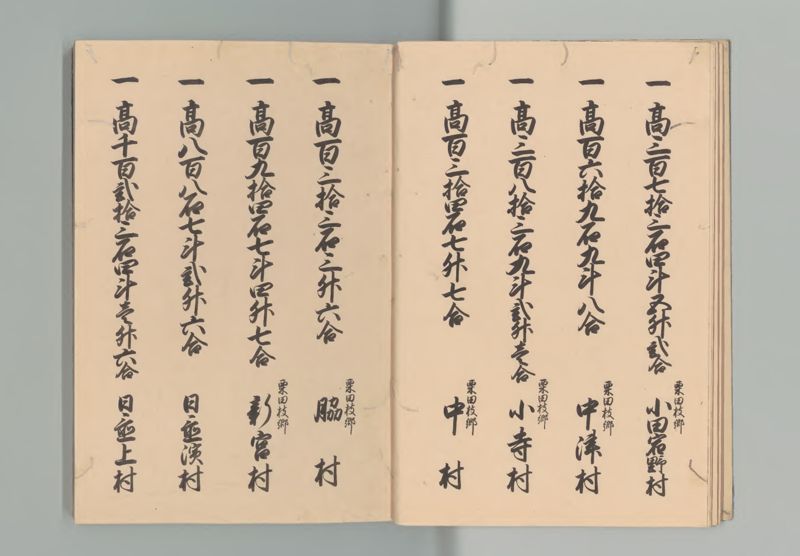 一 高三百七拾三石四斗五升弐合 栗田枝郷 小田宿野村
一 高百六拾九石九斗八合 栗田枝郷 中津村
一 高三百八拾三石九斗弐升壱合 栗田枝郷 小寺村
一 高百三拾四石七升七合 栗田枝郷 中村
一 高百三拾三石三升六合 栗田枝郷 脇村
一 高百九拾四石七斗四升七合 栗田枝郷 新宮村
一 高八百八石七斗弐升六合 日置濱村
一 高千百弐拾三石四斗壱升六合 日置上村